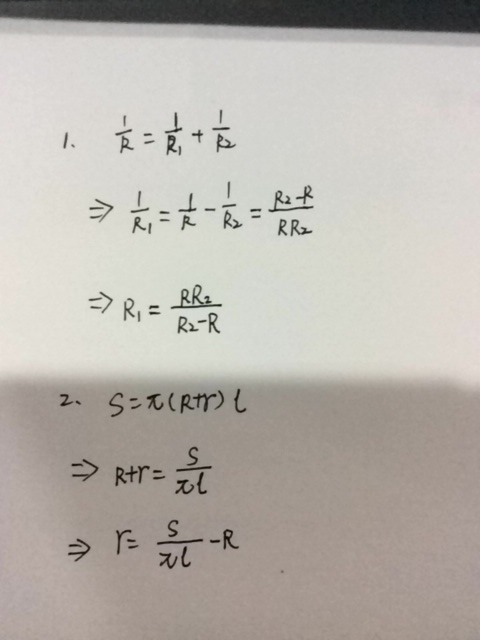 1. 1/R = 1/R₁ + 1/R₂
⇒ 1/R₁ = 1/R - 1/R₂ = (R₂-R)/(RR₂)
⇒ R₁ = (RR₂)/(R₂-R)
2. S=π(R+r)l
⇒ R+r= S/(πl)
⇒ r= S/(πl) -R